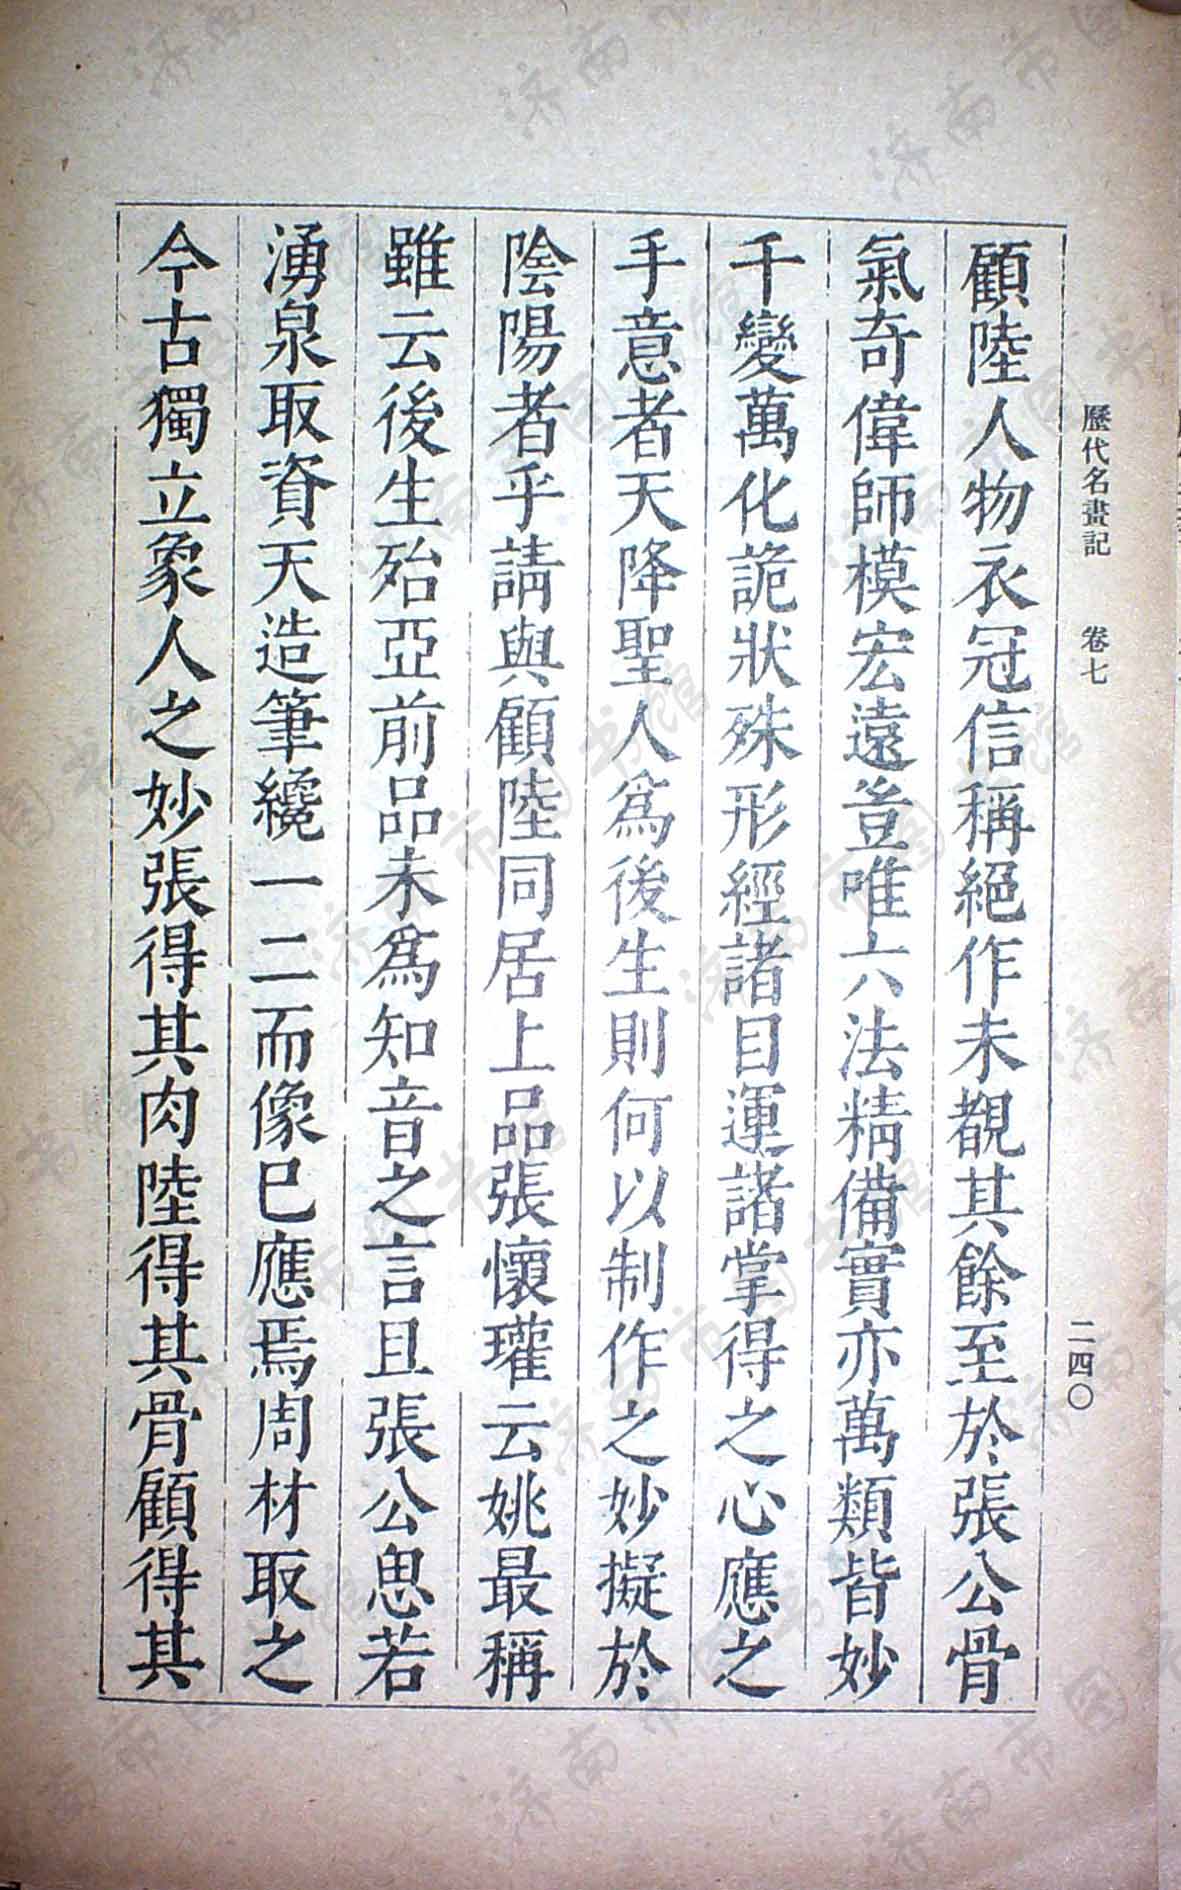 歷代名畫記　卷七　二四〇
顧陸人物衣冠信稱絕作未覩其餘至於張公骨
氣奇偉師模宏遠豈唯六法精備實亦萬類皆妙
千變萬化詭狀殊形經諸目運諸掌得之心應之
手意者天降聖人爲後生則何以制作之妙擬於
陰陽者乎請與顧陸同居上品張懷瓘云姚最稱
雖云後生殆亞前品未爲知音之言且張公思若
湧泉取資天造筆纔一二而像已應焉周材取之
今古獨立象人之妙張得其肉陸得其骨顧得其
济南市图书馆